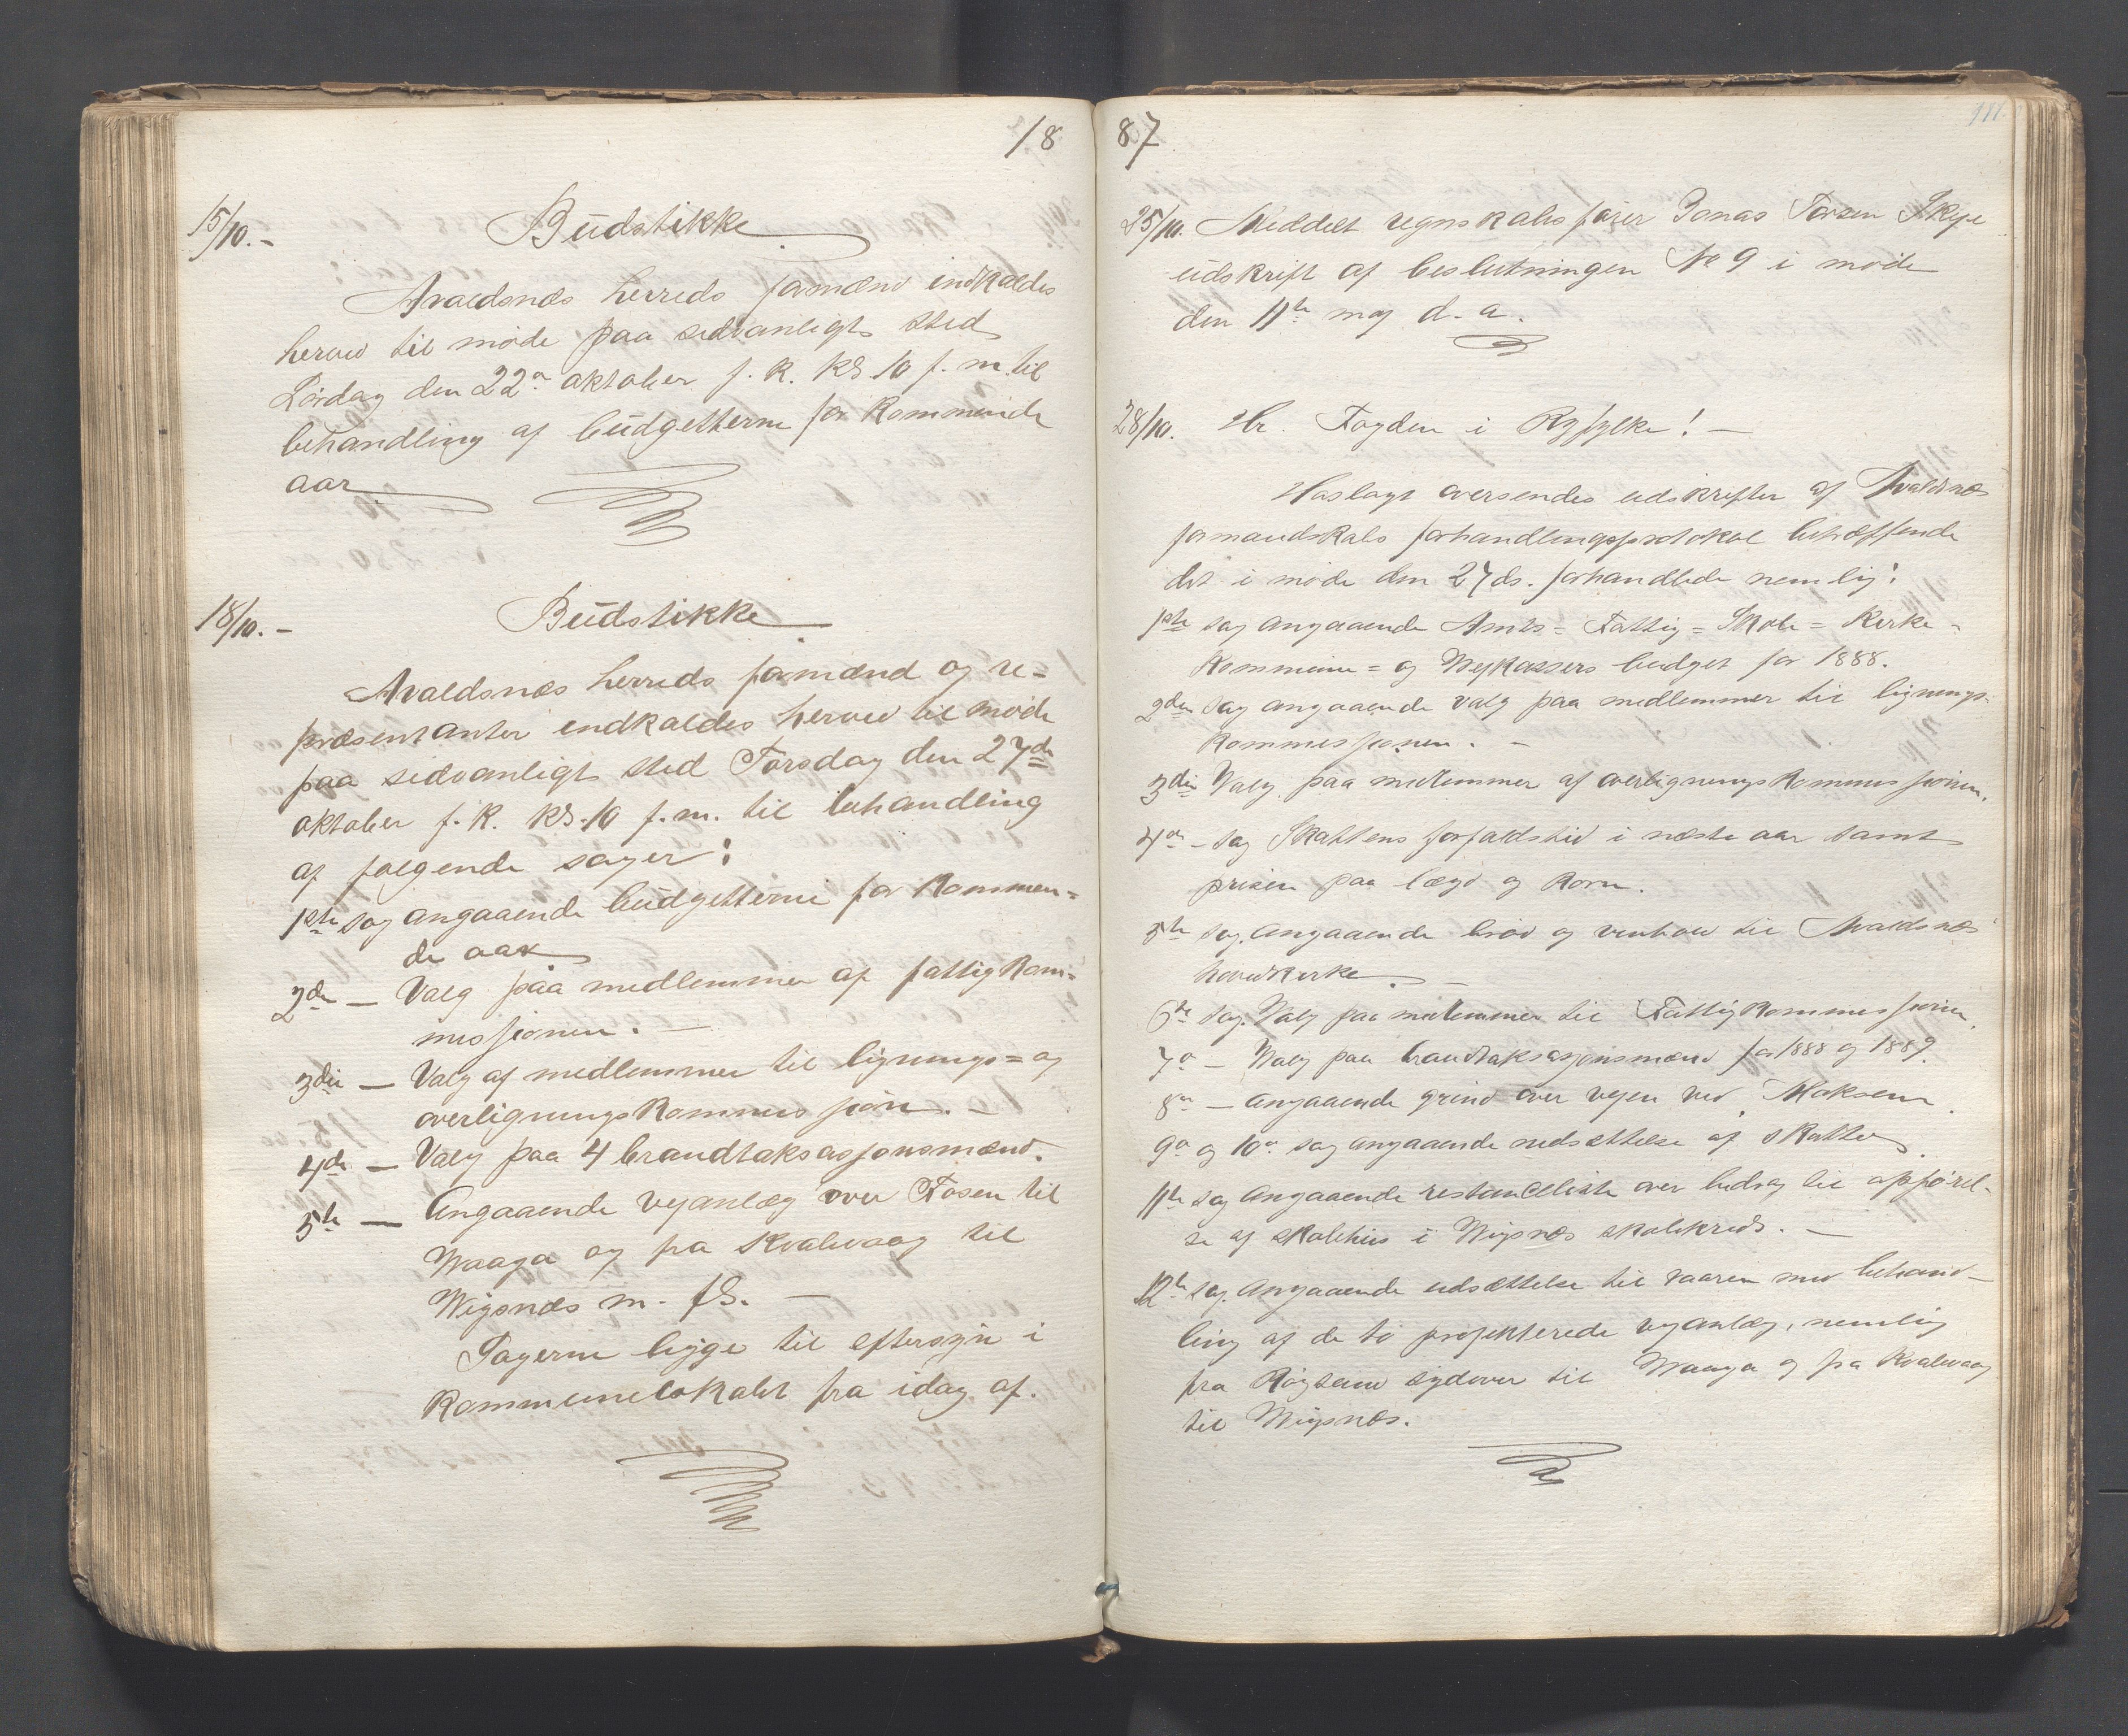 18
15/10.-
Budstikke
Avaldsnæs herreds formænd indkaldes
herved til møde paa sedvanligt sted
Lördag den 22a oktober f. k. kl. 10 f. m. til
behandling af budgetterne for kommende
aar
18/10.-
Budstikke
Avaldsnæs herreds formænd og re=
præsentanter indkaldes herved til møde
paa sedvanligt sted Torsdag den 27de
oktober f. k. kl. 10 f. m. til behandling
af følgende sager:
1ste sag angaaende budgetterne for kommen=
de aar
2den — Valg paa medlemmer af fattigkom=
missjonen. —
3die — Valg af medlemmer til lignings= og
overligningskommissjon. —
4de — Valg paa 4 brandtaksasjonsmænd.
5te — Angaaende vejanlæg over Fosen til
Waaga og fra Kvalevaag til
Wigsnæs m. fl. —
Sagerne ligge til eftersyn i
kommunelokalet fra idag af.
87
25/10. Meddelt regnskabsfører Jonas Torsen Skeje
udskrift af beslutningen No 9 i møde
den 11te maj d. a.
28/10. Hr. Fogden i Ryfylke! —
Hoslagt oversendes udskrifter af Avaldsnæs
formandskabs forhandlingsprotokol betræffende
det i møde den 27 ds. forhandlede nemlig:
1ste sag angaaende Amts= Fattig= Skole= Kirke=
Kommune= og Vejkassers budget for 1888.
2den sag angaaende valg paa medlemmer til lignings-
kommissjonen. —
3die Valg paa medlemmer af overligningskommissjonen.
4de - sag Skattens forfaldstid i næste aar samt
prisen paa lægd og korn.
5te sag. angaaende brød og vinhold til Avaldsnæs
hovedkirke. —
6te sag. Valg paa medlemmer til Fattigkommissjonen.
7de — Valg paa brandtaksasjonsmænd for 1888 og 1889.
8de — angaaende grind over vejen ved Moksem.
9de og 10de sag angaaende nedsættelse af skatter.
11te sag angaaende restanceliste over bidrag til opførel-
se af skolehus i Wigsnæs skolekreds. —
12te sag. angaaende udsættelse til vaaren med behand-
ling af de to projekterede vejanlæg, nemlig
fra sydover til Waaga og fra Kvalevaag
til Wigsnæs.